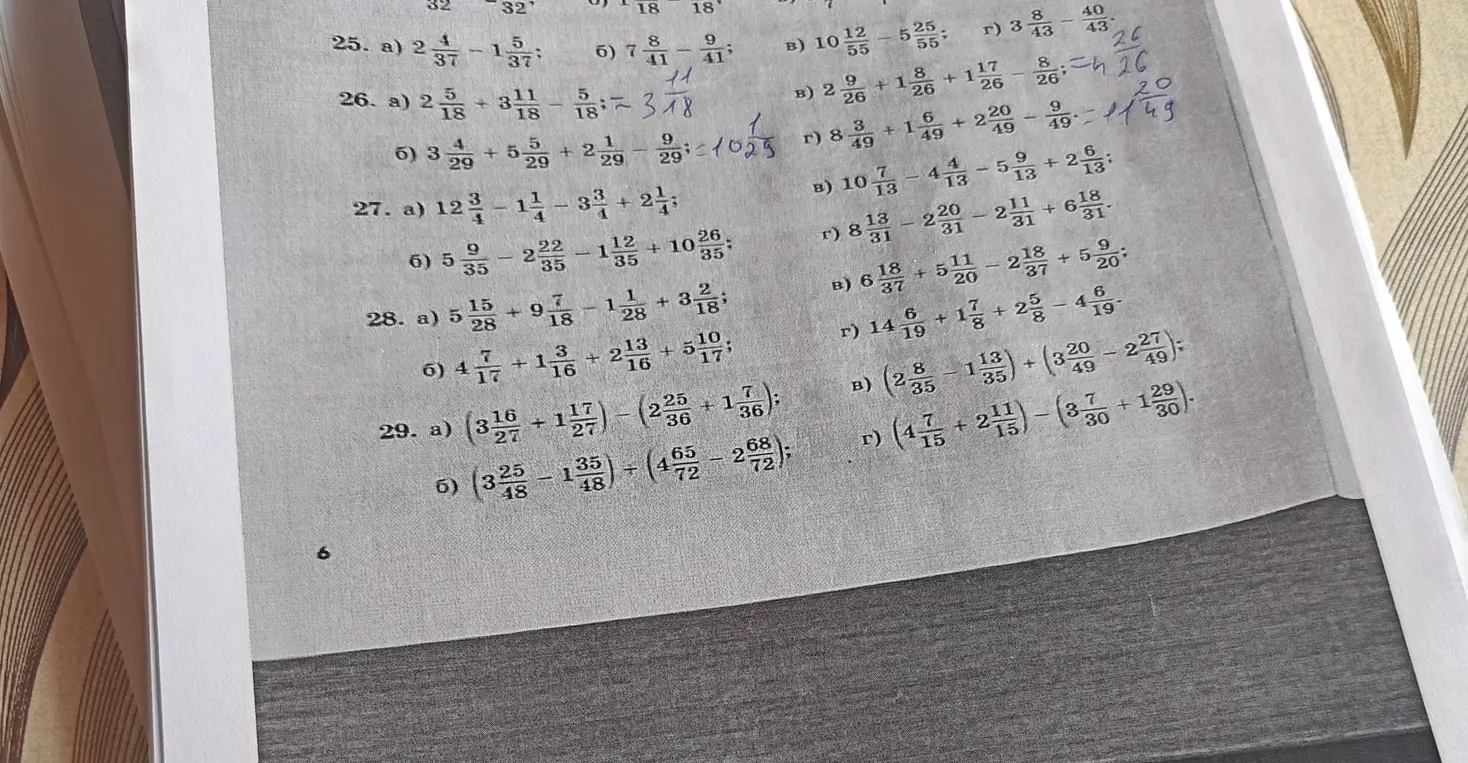 32 32; 18 18
25. а) 2 4/37 − 1 5/37; б) 7 8/41 − 9/41; в) 10 12/55 − 5 25/55; г) 3 8/43 − 40/43.
26. а) 2 5/18 + 3 11/18 − 5/18; = 3 11/18 в) 2 9/26 + 1 8/26 + 1 17/26 − 8/26; = 4 26/26
б) 3 4/29 + 5 5/29 + 2 1/29 − 9/29; = 10 1/29 г) 8 3/49 + 1 6/49 + 2 20/49 − 9/49. = 11 20/49
27. а) 12 3/4 − 1 1/4 − 3 3/4 + 2 1/4; в) 10 7/13 − 4 4/13 − 5 9/13 + 2 6/13;
б) 5 9/35 − 2 22/35 − 1 12/35 + 10 26/35; г) 8 13/31 − 2 20/31 − 2 11/31 + 6 18/31.
28. а) 5 15/28 + 9 7/18 − 1 1/28 + 3 2/18; в) 6 18/37 + 5 11/20 − 2 18/37 + 5 9/20;
б) 4 7/17 + 1 3/16 + 2 13/16 + 5 10/17; г) 14 6/19 + 1 7/8 + 2 5/8 − 4 6/19.
29. а) (3 16/27 + 1 17/27) − (2 25/36 + 1 7/36); в) (2 8/35 − 1 13/35) + (3 20/49 − 2 27/49);
б) (3 25/48 − 1 35/48) + (4 65/72 − 2 68/72); г) (4 7/15 + 2 11/15) − (3 7/30 + 1 29/30).
6